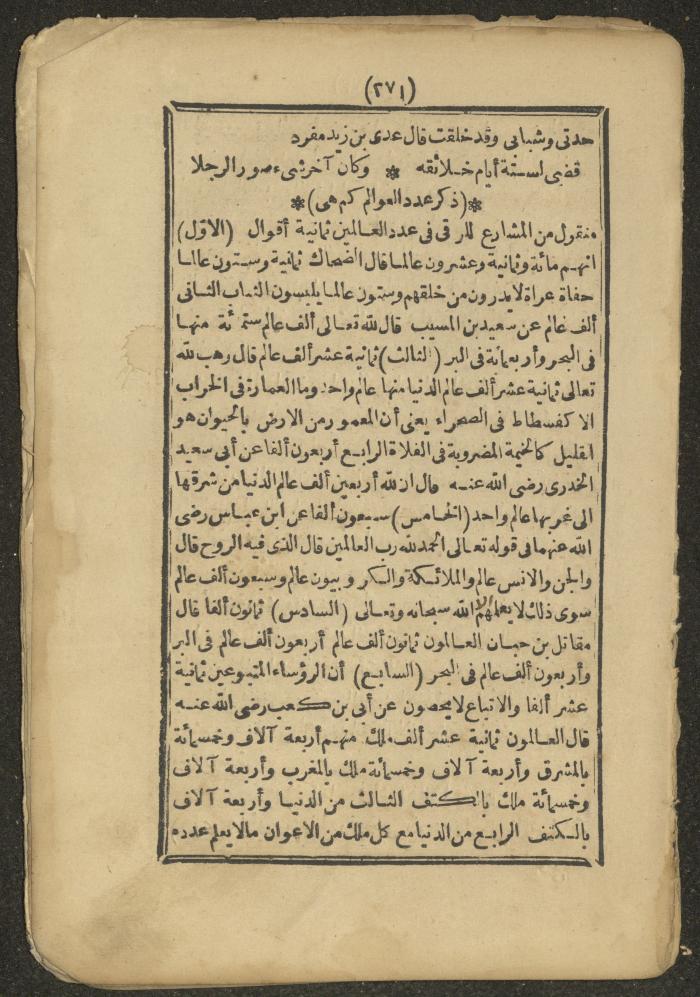 (٢٧١)
حدتي وشبابي وقد خلقت قال عدي بن زيد مفرد
قضى لستة أيام خلائقه * وكان آخر شيء صور الرجلا
*(ذكر عدد العوالم كم هي)*
منقول من المشارع للرقى فى عدد العالمين ثمانية أقوال (الاول)
انهم مائة وثمانية وعشرون عالما قال الضحاك ثمانية وستون عالما
حفاة عراة لا يدرون من خلقهم وستون عالما يلبسون الثياب الثانى
ألف عالم عن سعيد بن المسيب قال لله تعالى ألف عالم ستمائة منها
فى البحر وأربعمائة فى البر (الثالث) ثمانية عشر ألف عالم قال وهب لله
تعالى ثمانية عشر ألف عالم الدنيا منها عالم واحد وما العمارة فى الخراب
الا كفسطاط فى الصحراء يعنى أن المعمور من الارض بالحيوان هو
القليل كالخيمة المضروبة فى الفلاة الرابع أربعون ألفا عن أبى سعيد
الخدرى رضى الله عنه قال ان لله أربعين ألف عالم الدنيا من شرقها
الى غربها عالم واحد (الخامس) سبعون ألفا عن ابن عباس رضى
الله عنهما فى قوله تعالى الحمد لله رب العالمين قال الذى فيه الروح قال
والجن والانس عالم والملائكة والكروبيون عالم وسبعون ألف عالم
سوى ذلك لا يعلمهم الا الله سبحانه وتعالى (السادس) ثمانون ألفا قال
مقاتل بن حيان العالمون ثمانون ألف عالم أربعون ألف عالم فى البر
وأربعون ألف عالم فى البحر (السابع) أن الرؤساء المتبوعين ثمانية
عشر ألفا والاتباع لا يحصون عن أبى بن كعب رضى الله عنه
قال العالمون ثمانية عشر ألف ملك منهم أربعة آلاف وخمسمائة
بالمشرق وأربعة آلاف وخمسمائة ملك بالمغرب وأربعة آلاف
وخمسمائة ملك بالكتف الثالث من الدنيا وأربعة آلاف
بالكتف الرابع من الدنيا مع كل ملك من الاعوان ما لا يعلم عدده